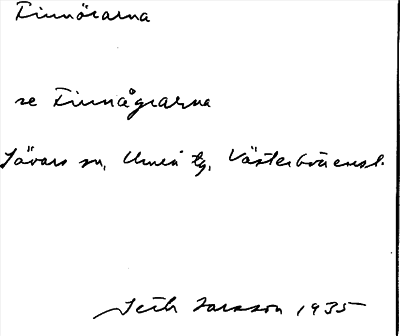 Finnörarna
se Finnågrarna
Sävars sn, Umeå tg, Västerbottensl.
Seth Larsson 1935